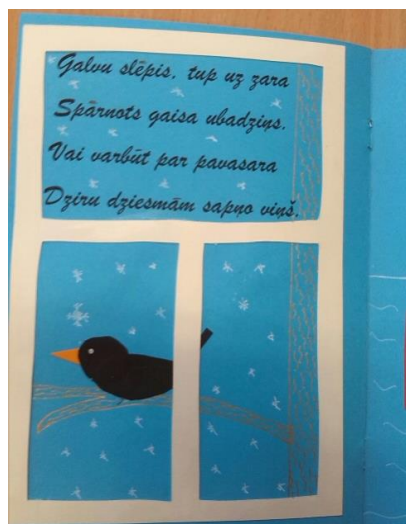 Galvu slēpis, tup uz zara
Spārnots gaisa ubadziņs.
Vai varbūt par pavasara
Dziru dziesmām sapņo viņš.